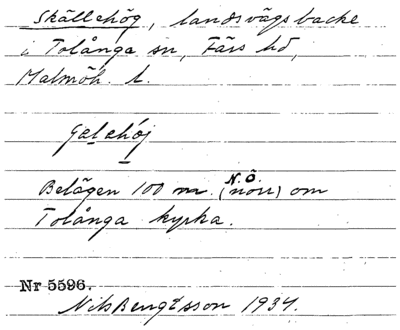 Skällehög, landsvägsbacke
i Tolånga sn, Färs hd,
Malmöh. l.
Galahöj
Belägen 100 m. (norr) N.Ö. om
Tolånga kyrka.
Nr 5596.
Nils Bengtsson 1934.